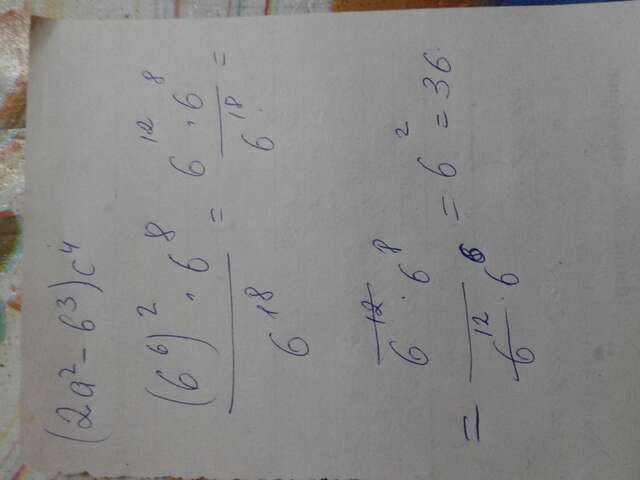 (2a² − b³)c⁴
\frac{(6^6)^2 · 6^8}{6^{18}} = \frac{6^{12} · 6^8}{6^{18}} =
= \frac{6^{12} · 6^8}{6^{12} · 6^6} = 6² = 36